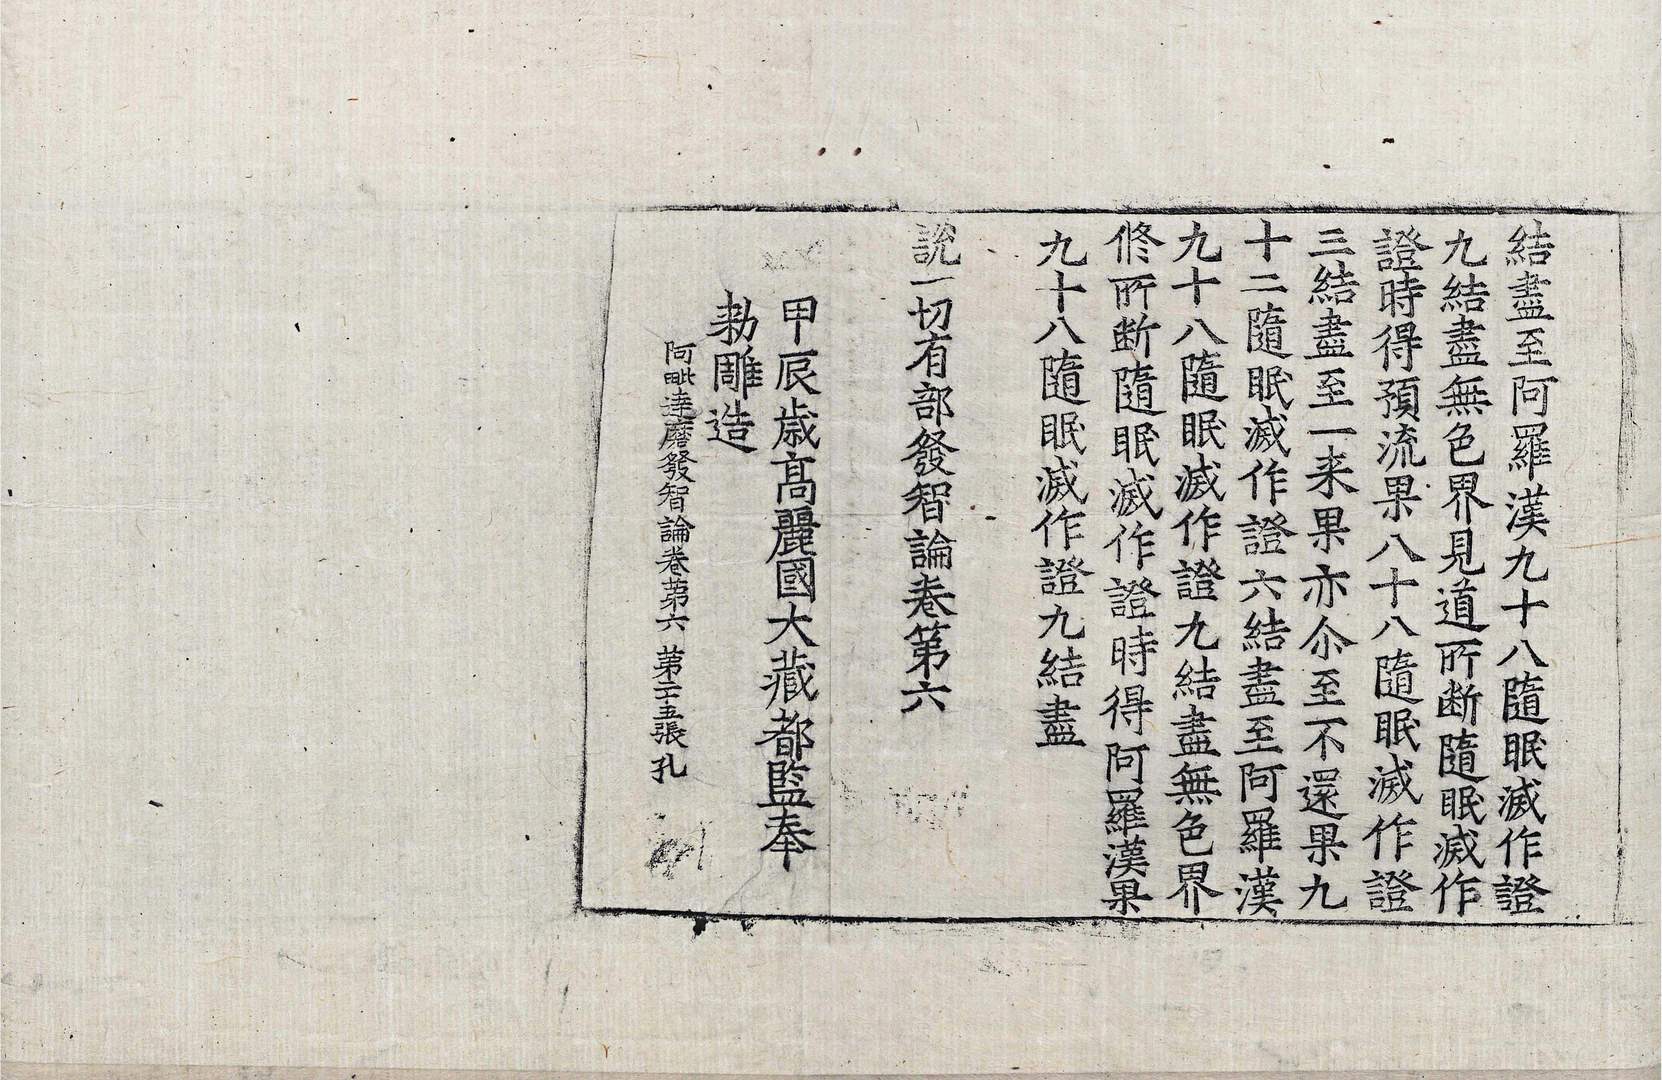 結盡至阿羅漢九十八隨眠滅作證
九結盡無色界見道所断隨眠滅作
證時得預流果八十八隨眠滅作證
三結盡至一来果亦尒至不還果九
十二隨眠滅作證六結盡至阿羅漢
九十八隨眠滅作證九結盡無色界
修所断隨眠滅作證時得阿羅漢果
九十八隨眠滅作證九結盡
說一切有部發智論卷第六
甲辰歳髙麗國大藏都監奉
勅雕造
阿毗達磨發智論卷第六 第二十五張 孔